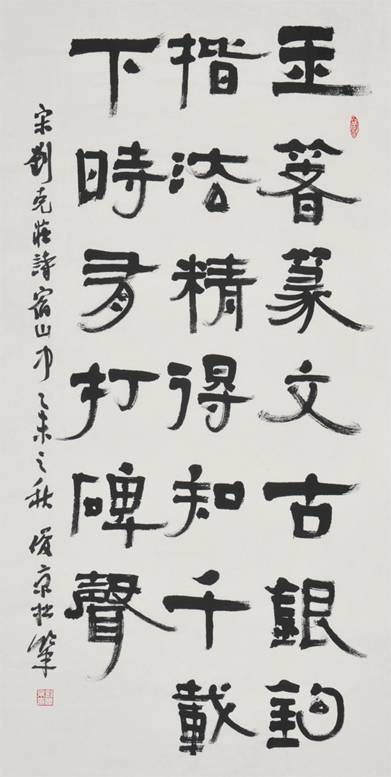 玉箸篆文古銀鉤
指法精得知千載
下時有打碑聲
宋劉克莊詩宿山中乙未之秋俊京拙筆